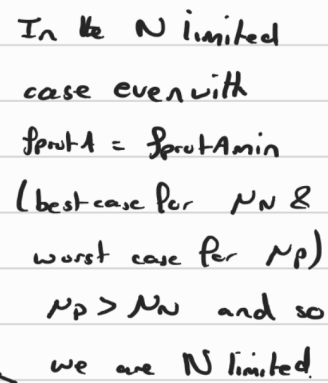 In the N limited
case even with
fprotA = fprotAmin
(best case for μN &
worst case for μP)
μP > μN and so
we are N limited.